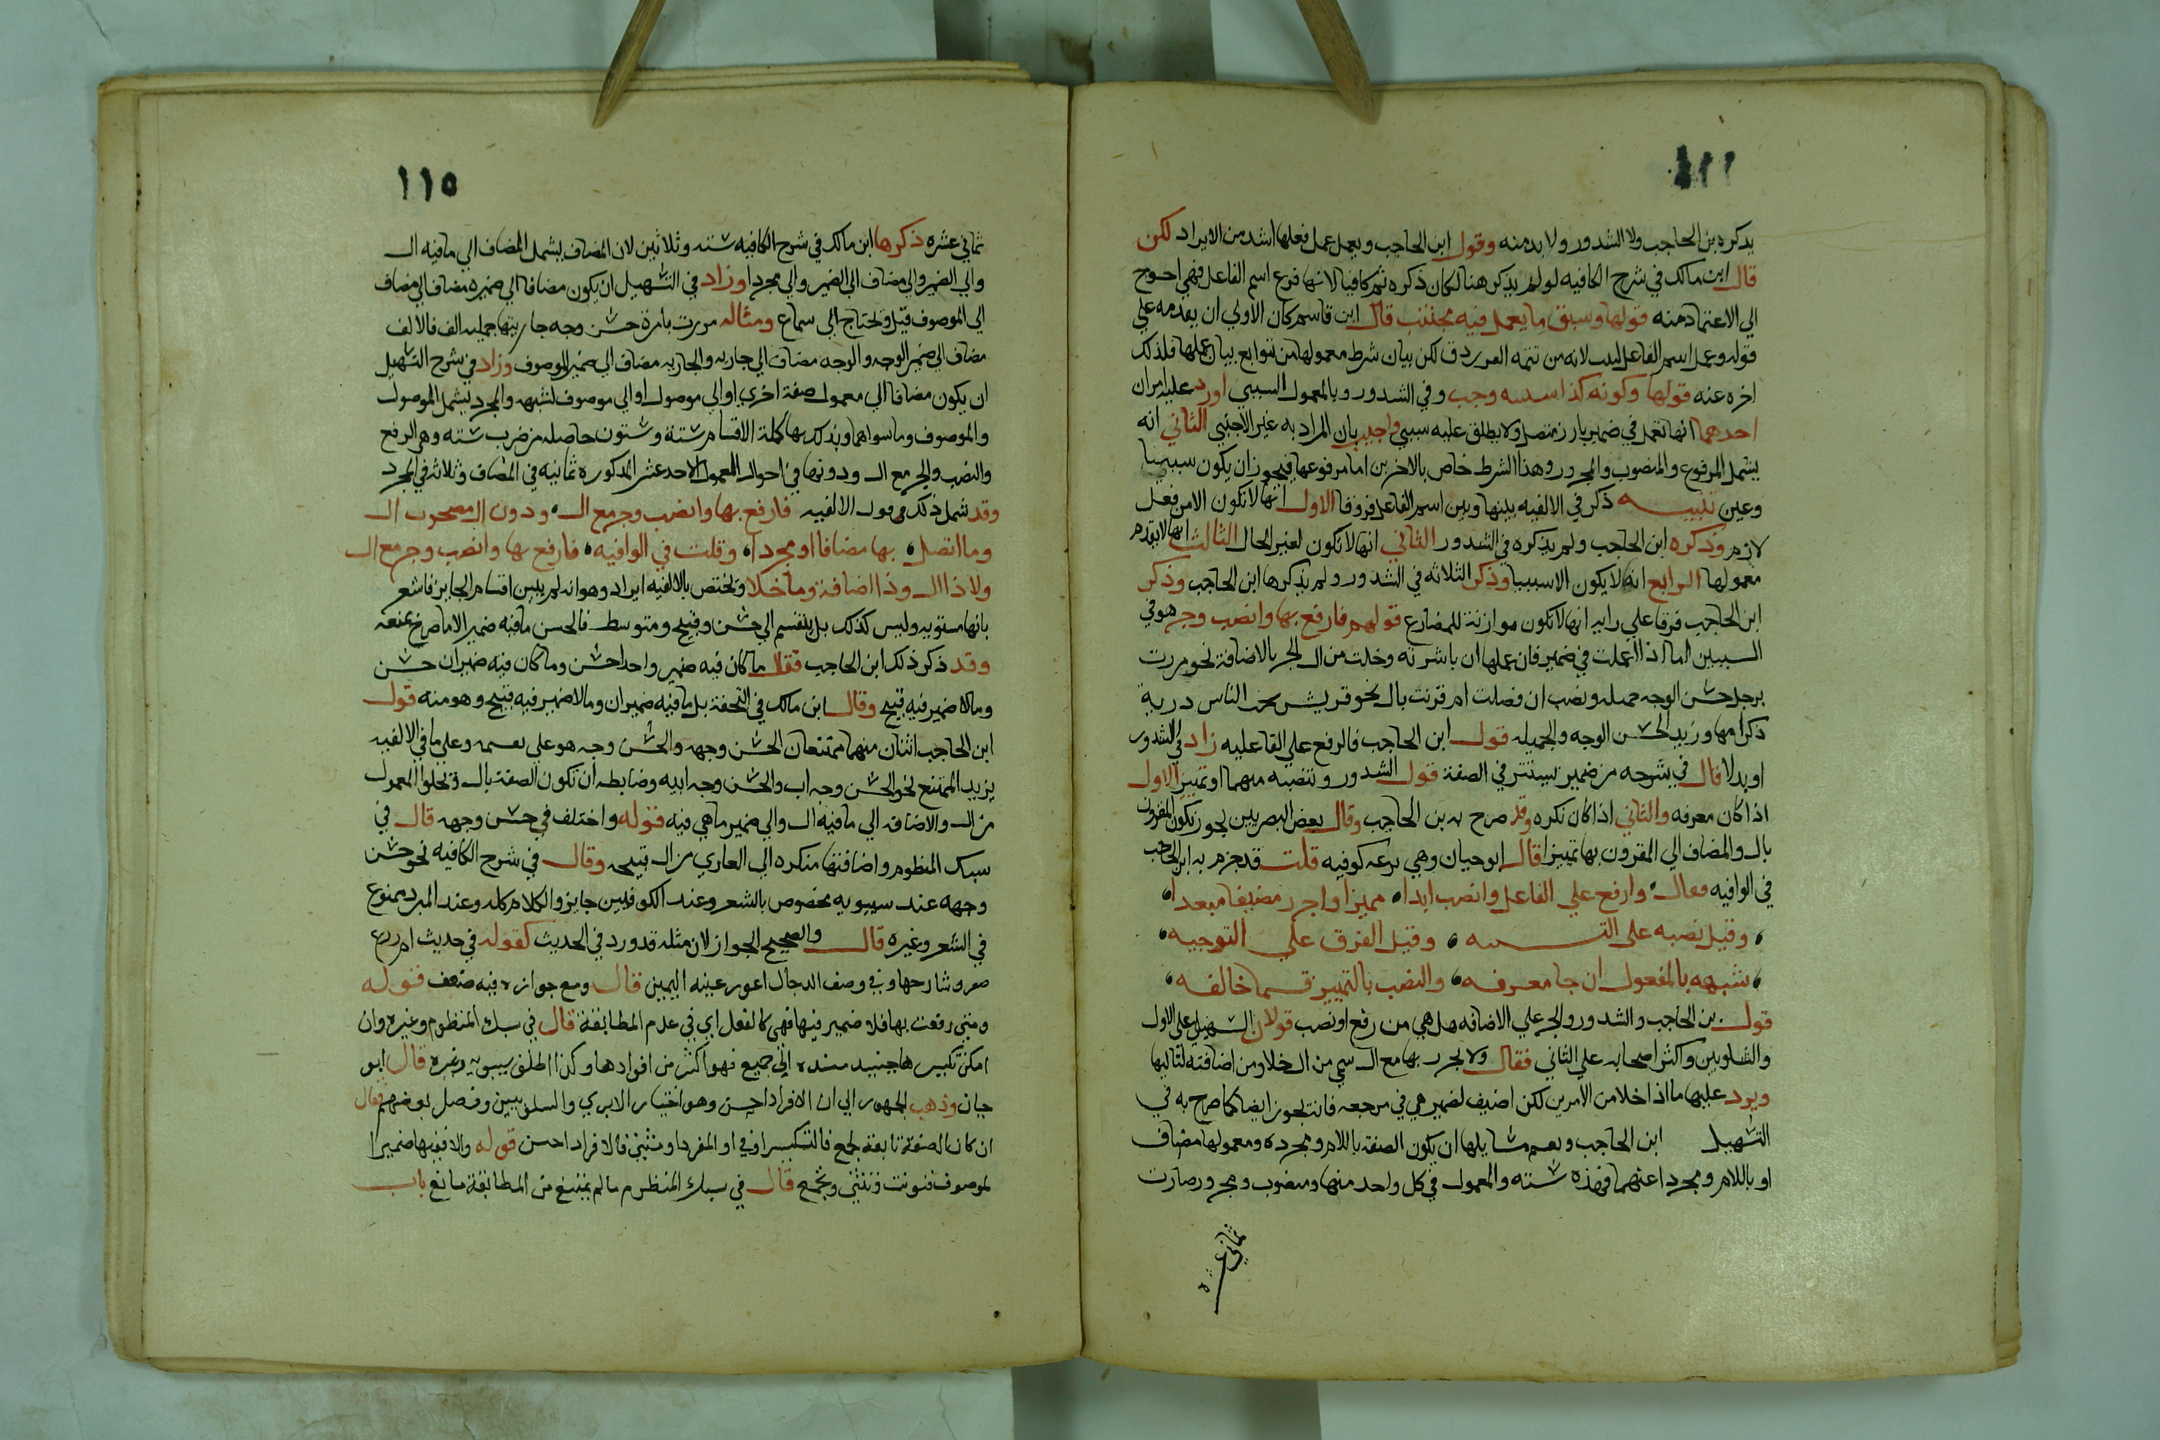 يذكره بن الحاجب ولا الشذور ولا بد منه وقول ابن الحاجب ويعمل عمل فعلها اشد من الايراد لكن
قال ابن مالك في شرح الكافيه لو لم يذكر هنا لكان ذكره ثم كافيا لانها فرع اسم الفاعل فهي احوج
الي الاعتماد منه قولها وسبق ما يعمل فيه مجتنب قال ابن قاسم كان الاولي ان يقدمه علي
قوله وعمل اسم الفاعل لانه من تتمه لكن بيان شرط معمولها من توابع بيان عملها فلذلك
اخره عنه قولها وكونه ذا سببيه وجب وفي الشذور وبالمعمول السببي اورد عليه امران
احدهما انها تعمل في ضمير بارز متصل ولا يطلق عليه سببي واجيب بان المراد به غير الاجنبي الثاني انه
يشمل المرفوع والمنصوب والمجرور وهذا الشرط خاص بالاخرين اما مرفوعها فيجوز ان يكون سببيا
وعين تنبيه ذكر في الالفيه بينها وبين اسم الفاعل فروقا الاول انها لا تكون الا من فعل
لازم وذكره ابن الحاجب ولم يذكره في الشذور الثاني انها لا تكون لغير الحال الثالث انها لا يتقدم
معمولها الرابع انه لا يكون الا سببيا وذكر الثلاثه في الشذور ولم يذكرها ابن الحاجب وذكر
ابن الحاجب فرقا علي رايه انها لا تكون موازنة للمضارع قولهم فارفع بها وانصب وجر هو في
السببين اما اذا اعملت في ضمير فان عملها ان باشرته وخلت من ال الجر بالاضافة نحو مررت
برجل حسن الوجه جميله ونصب ان فصلت ام قرنت بال نحو قريش الناس ذرية
ذكرامها وزيد الحسن الوجه والجميله قول ابن الحاجب فالرفع علي الفاعليه زاد في الشذور
او بدلا قال في شرحه من ضمير يستتر في الصفة قول الشذور وننصبه منهما او تمييز الاول
اذا كان معرفه والثاني اذا كان نكره وقد صرح به بن الحاجب وقال بعض البصريين يجوز تكون المقرون
بال والمضاف الي المقرون بها تمييزا قال ابو حيان وهي نزعه كوفيه قلت قد جزم به ابن الحاجب
في الوافيه فقال وارفع علي الفاعل وانصب ابدا مميزا واجرر مضيفا مبعدا
وقيل نصبه على التشبيه وقيل الفرق علي التوجيه
شبهه بالمفعول ان جا معرفه والنصب بالتمييز قسما خالفه
قول بن الحاجب والشذور والجر علي الاضافه هل هي من رفع او نصب قولان السهيلي علي الاول
والشلوبين واكثر اصحابه علي الثاني فقال ولا تجرر بها مع ال سمي من ال خلا ومن اضافته لتاليها
ويرد عليها ما اذا خلا من الامرين لكن اضيف لضمير هي في مرجعه فانه يجوز ايضا كما صرح به في
التسهيل ابن الحاجب مسايلها ان يكون الصفة باللام ومجرده ومعمولها مضاف
او باللام ومجردا عنهما فهذه سته والمعمول في كل واحد منها ومنصوب ومجرور صارت
ثماني عشره
١١٥
ثماني عشره ذكرها ابن مالك في شرح الكافيه سته وثلاثين لان المضاف يشمل المضاف الي ما فيه ال
والي الضمير والي مضاف الي الضمير والي مجرد وزاد في التسهيل ان يكون مضافا الي ضميره مضاف الي مضاف
الي الموصوف قيل ويحتاج الي سماع ومثاله مررت بامرة حسن وجه جاريتها جميله انف فالانف
مضاف الي ضمير الوجه والوجه مضاف الي جاريه والجاريه مضاف الي ضمير الموصوف وزاد في شرح التسهيل
ان يكون مضافا الي معمول صفة اخري او الي موصول او الي موصوف تشبهه والمجرد يشمل الموصول
والموصوف وما سواهما وبذلك بها كملة الاقسام ستة وستون حاصله من ضرب سته وهي الرفع
والنصب والجر مع ال ودونها في احوال المعمول الاحد عشر المذكوره ثمانيه في المضاف وثلاثه في المجرد
وقد شمل ذلك قول الالفيه فارفع بها وانصب وجر مع ال ودون ال مصحوب ال
وما اتصل بها مضافا او مجردا وقلت في الوافيه فارفع بها وانصب وجر مع ال
ولا ذا ال وذا اضافة وما خلا ويختص بالالفيه ايراد وهو انه لم يبين اقسام الجايز فاشعر
بانها مستويه وليس كذلك بل ينقسم الي حسن وقبيح ومتوسط فالحسن ما فيه ضمير الا ما
وقد ذكر ذلك ابن الحاجب فقال ما كان فيه ضمير واحد احسن وما كان فيه ضميران حسن
وما لا ضمير فيه قبيح وقال ابن مالك في التحفة بل ما فيه ضميران وما لا ضمير فيه قبيح وهو منه قول
ابن الحاجب اثنان منهما ممتنعان الحسن وجهه والحسن وجه هو علي وعلي ما في الالفيه
يزيد الممتنع نحو الحسن وجه اب والحسن وجه ابيه وضابطه ان تكون الصفة بال وتخلو المعمول
من ال والاضافه الي ما فيه ال والي ضمير ما هي فيه قوله واختلف في حسن وجهه قال في
سبك المنظوم واضافتها منكره الي العاري من ال قبيحه وقال في شرح الكافيه نحو حسن
وجهه عند سيبويه مخصوص بالشعر وعند الكوفيين جايز والكلام كله وعند المبرد ممنوع
في الشعر وغيره قال والصحيح الجواز لان مثله قد ورد في الحديث كقوله في حديث ام زرع
صفر وشاحها وفي وصف الدجال اعور عينه اليمين قال ومع جوازه فيه ضعف قوله
ومتي رفعت بها فلا ضمير فيها فهي كالفعل اي في عدم المطابقة قال في سبك المنظوم وغيره وان
امكن تكسيرها حينيد مسنده الي جمع فهو اكثر من افرادها وكذا اطلق سيبويه وغيره قال ابو
حيان وذهب الجمهور الي ان الافراد احسن وهو اختيار الابدي والشلوبيين وفصل بعضهم فقال
ان كان الصفة تابعة لجمع فالتكسير او في او المفرد او مثني فالافراد احسن قوله والا ففيها ضمير
لموصوف فتونث وتثني وتجمع قال في سبك المنظوم ما لم يمنع من المطابقة مانع باب